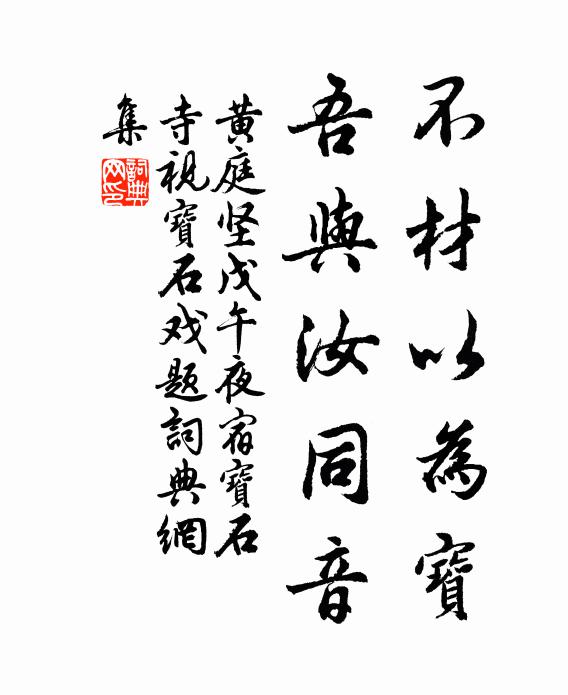 不材以為寶
吾與汝同音
黄庭坚戊午夜宿寶石
寺視寶石戏题詞典網
集
詞典
网印